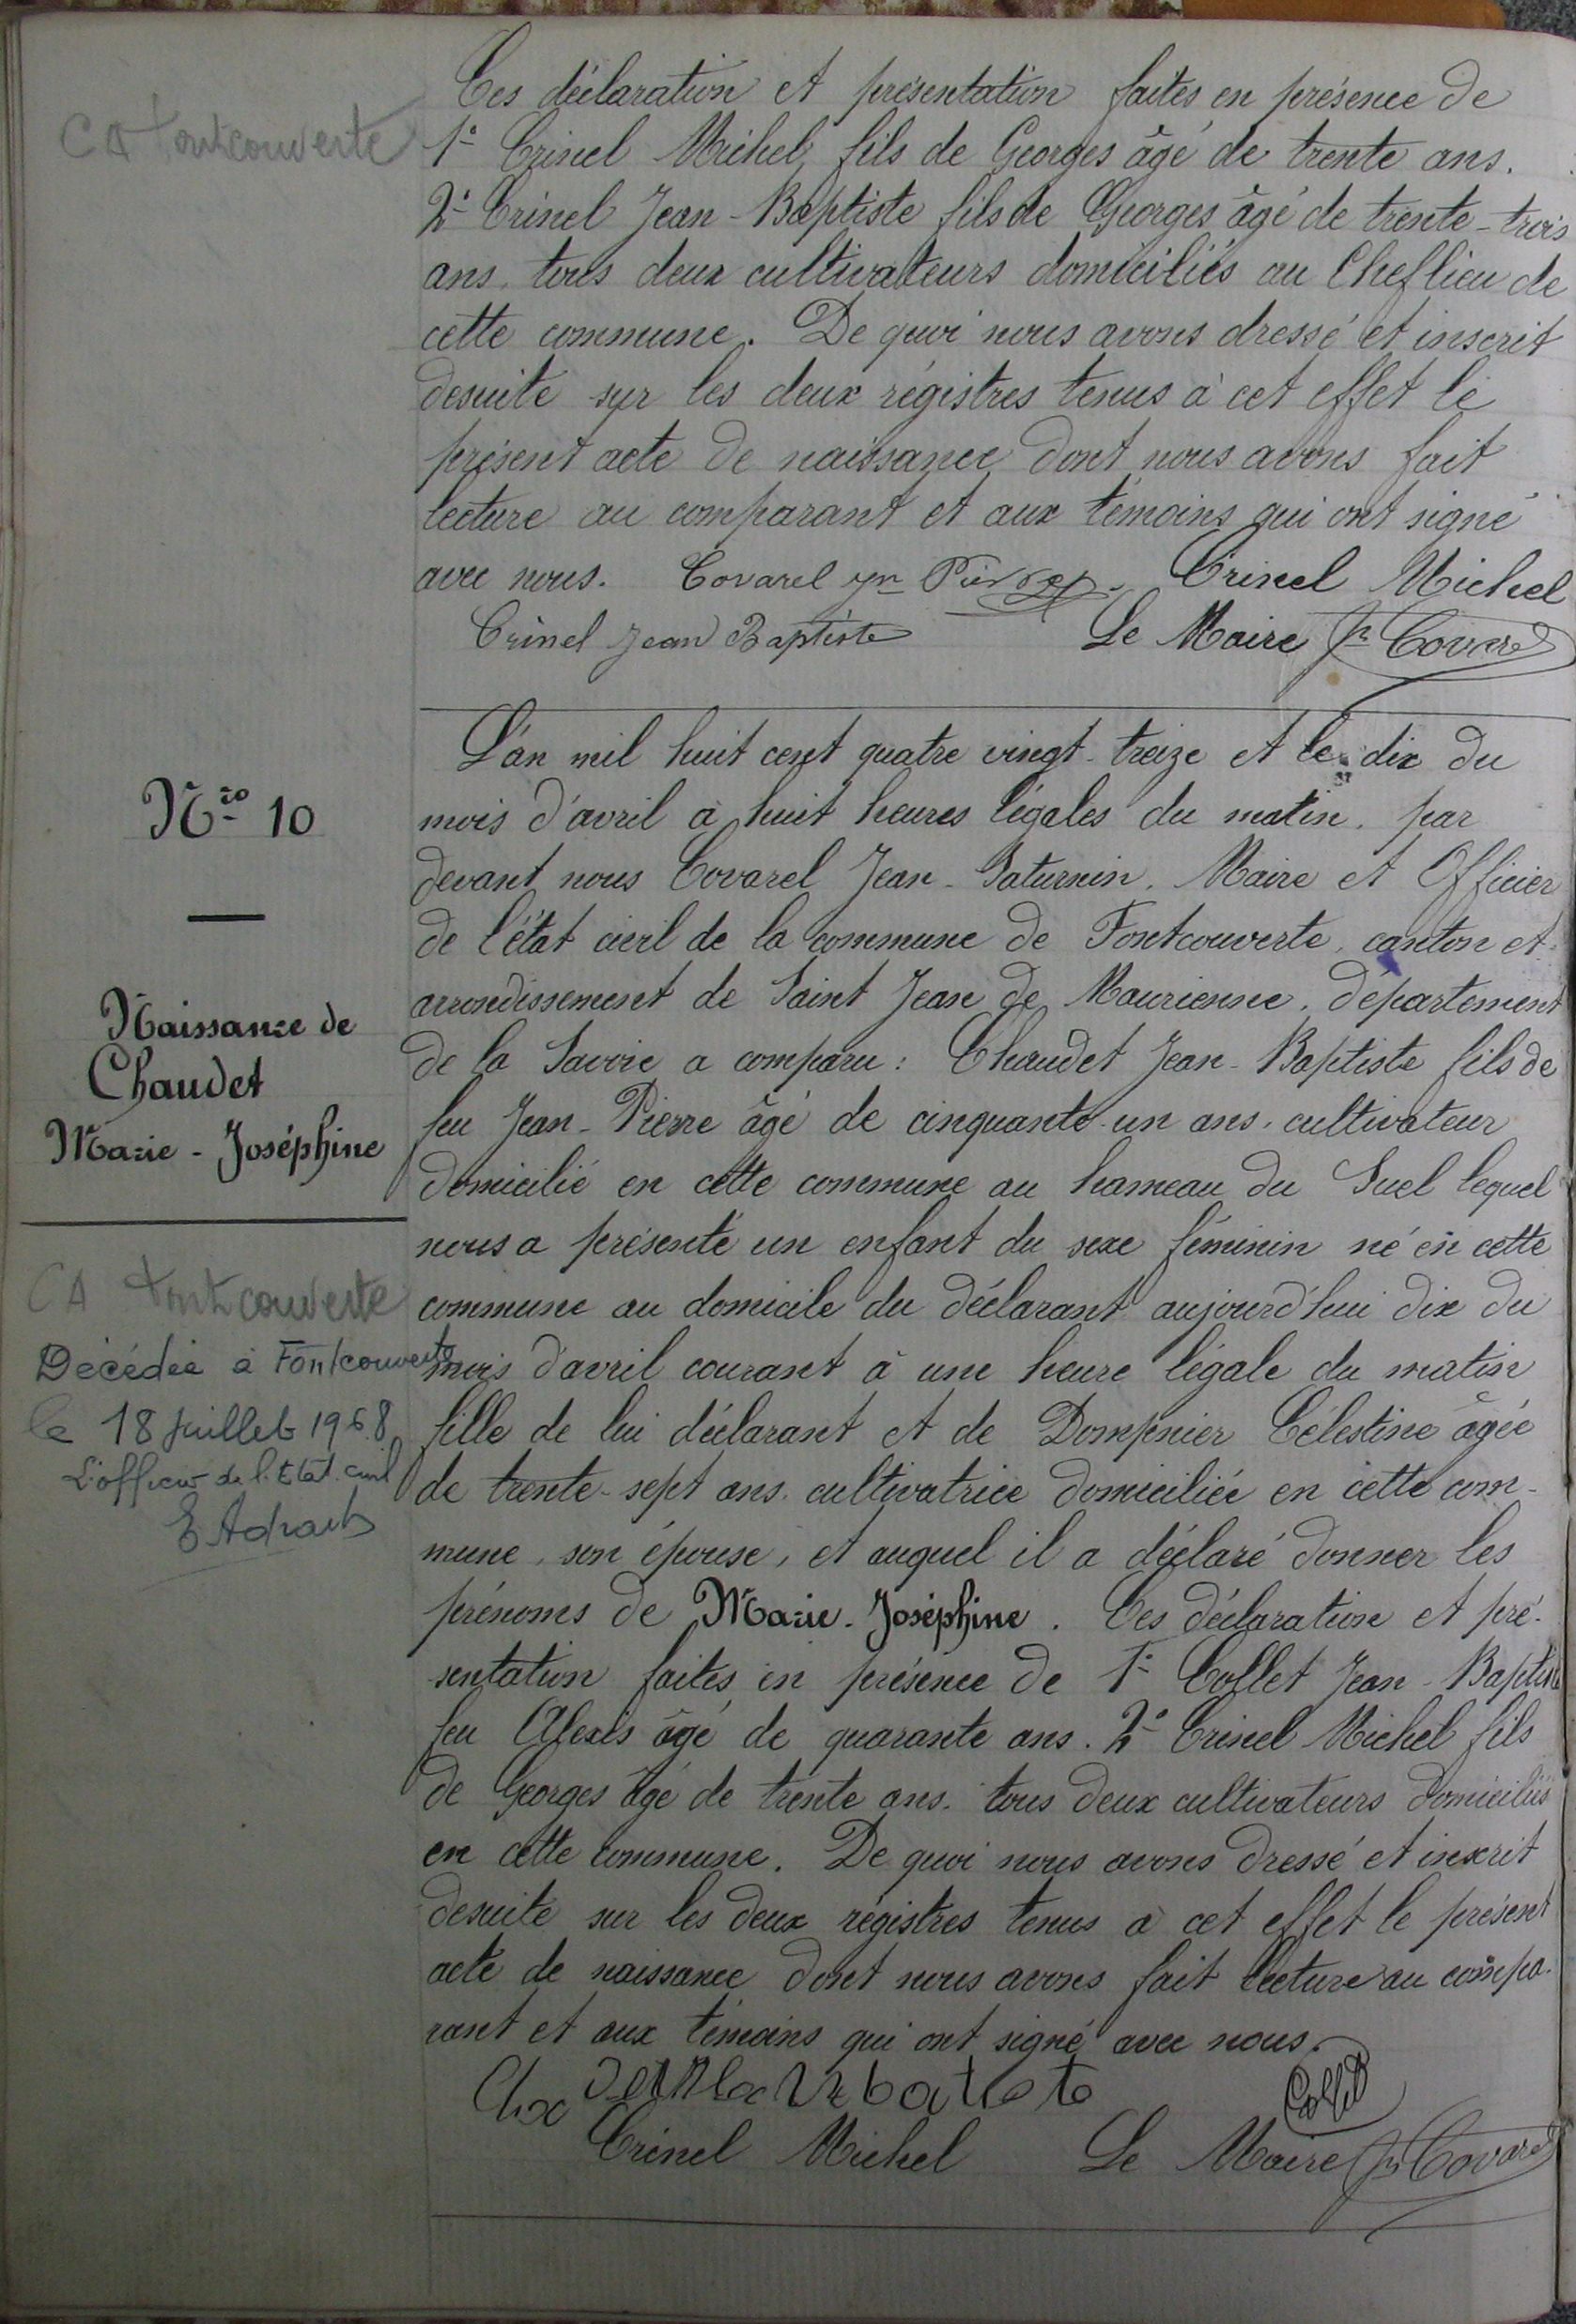 CA Fontcouverte
Ces déclaration et présentation faites en présence de
1° Crinel Michel, fils de Georges âgé de trente ans.
2° Crinel Jean-Baptiste fils de Georges âgé de trente-trois
ans, tous deux cultivateurs domiciliés au Cheflieu de
cette commune. De quoi nous avons dressé et inscrit
desuite sur les deux régistres tenus à cet effet le
présent acte de naissance dont nous avons fait
lecture au comparant et aux témoins qui ont signé
avec nous. Covarel Pierre Crinel Michel
Crinel Jean Baptiste Le Maire Jn Covarel
N° 10
Naissance de
Chaudet
Marie-Joséphine
CA Fontcouverte
Décédée à Fontcouverte
le 18 juillet 1968
L'officier de l'Etat civil
L'an mil huit cent quatre vingt-treize et le dix du
mois d'avril à huit heures légales du matin, par
devant nous Covarel Jean-Saturnin, Maire et Officier
de l'état civil de la commune de Fontcouverte, canton et
arrondissement de Saint Jean de Maurienne, département
de la Savoie a comparu : Chaudet Jean-Baptiste fils de
feu Jean-Pierre âgé de cinquante-un ans, cultivateur
domicilié en cette commune au hameau du Suel lequel
nous a présenté un enfant du sexe féminin né en cette
commune au domicile du déclarant aujourd'hui dix du
mois d'avril courant à une heure légale du matin
fille de lui déclarant et de Dompnier Célestine âgée
de trente-sept ans, cultivatrice domiciliée en cette com-
mune, son épouse, et auquel il a déclaré donner les
prénoms de Marie-Joséphine. Ces déclaration et pré-
sentation faites en présence de 1° Collet Jean-Baptiste
feu Alexis âgé de quarante ans. 2° Crinel Michel fils
de Georges âgé de trente ans. tous deux cultivateurs domiciliés
en cette commune. De quoi nous avons dressé et inscrit
desuite sur les deux régistres tenus à cet effet le présent
acte de naissance dont nous avons fait lecture au compa-
rant et aux témoins qui ont signé avec nous.
Collet
Crinel Michel Le Maire Jn Covarel